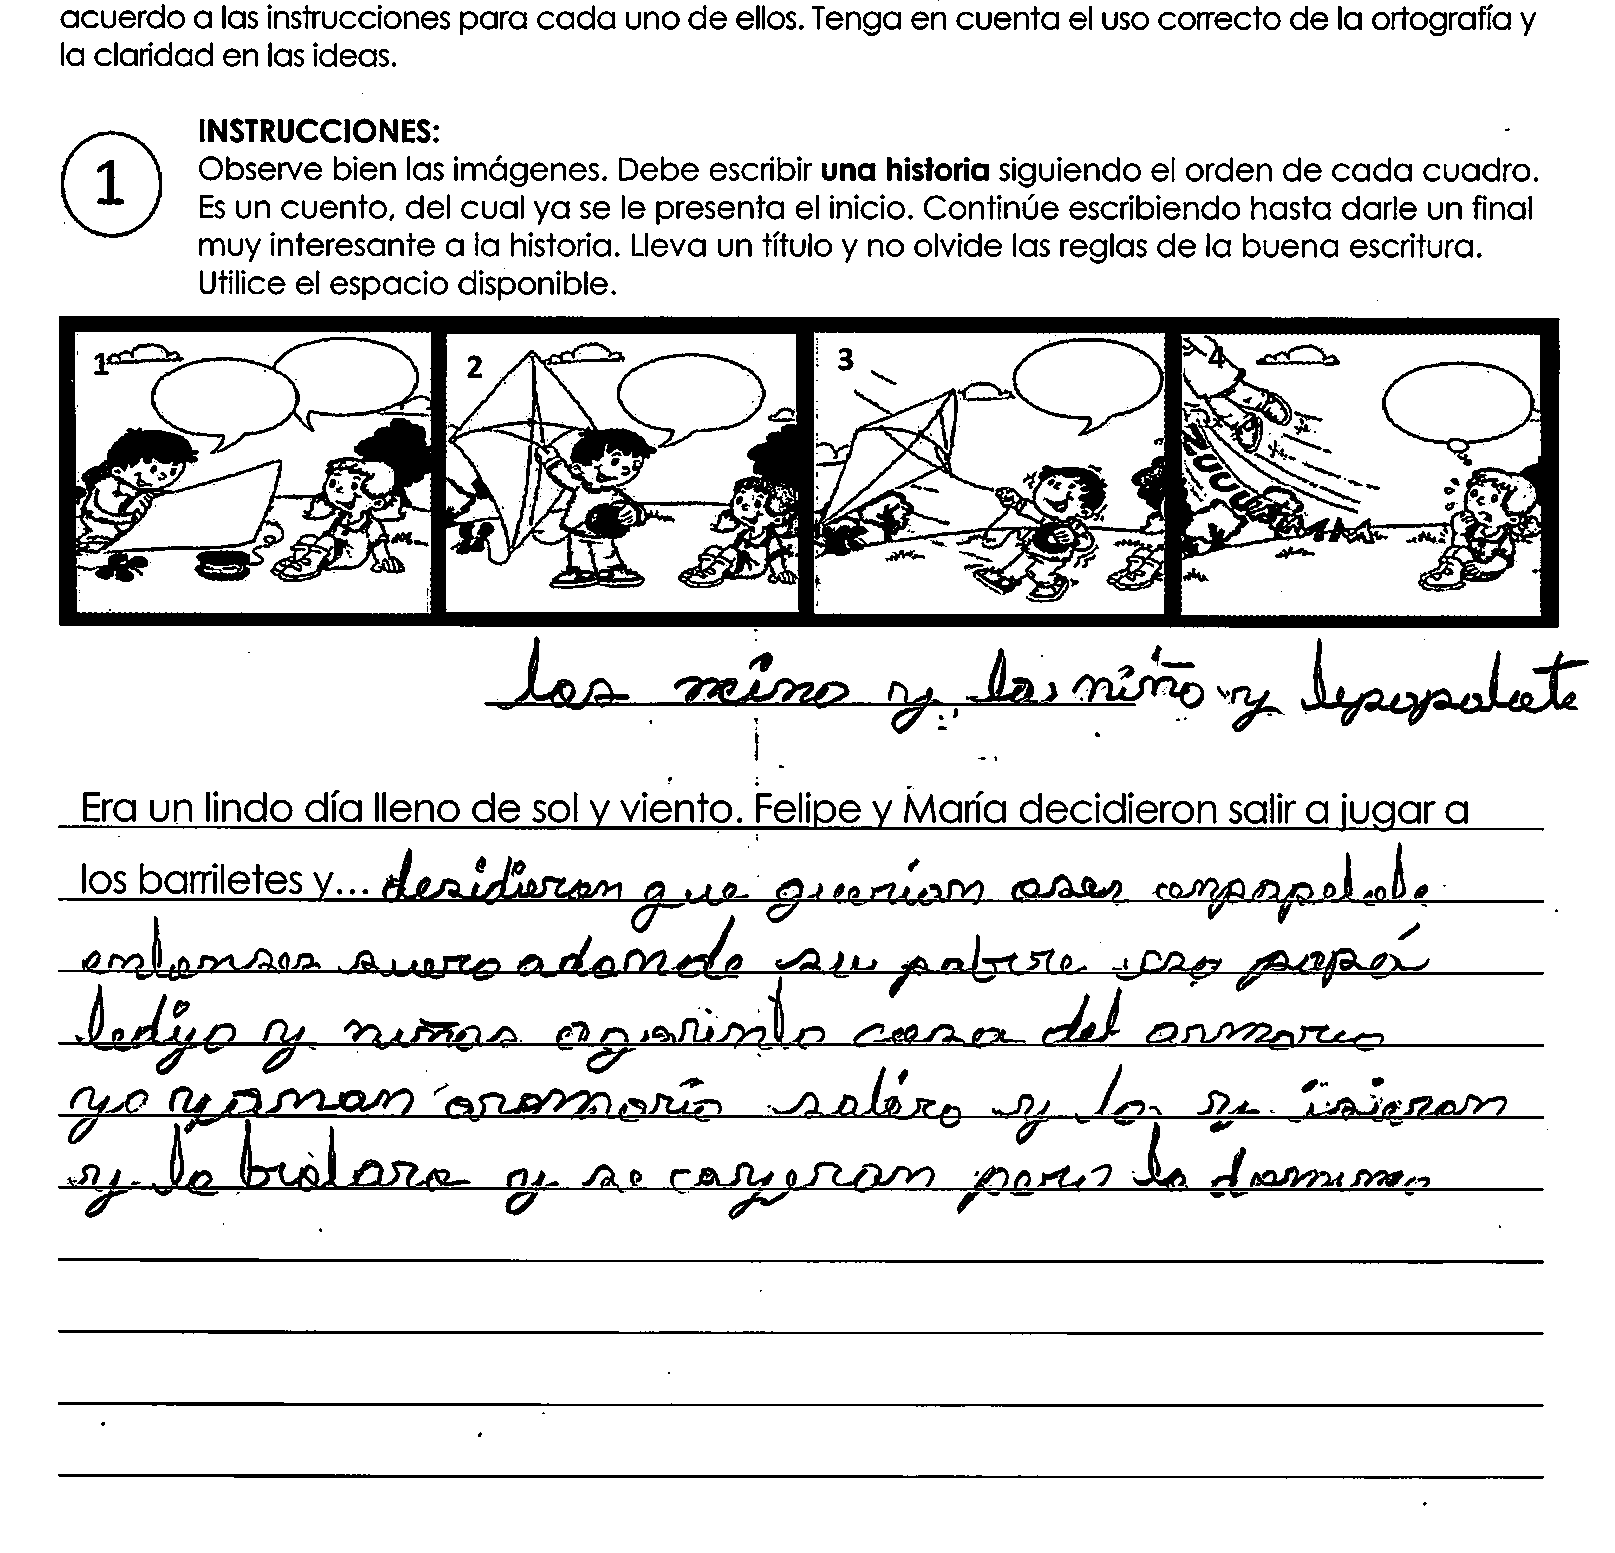 acuerdo a las instrucciones para cada uno de ellos. Tenga en cuenta el uso correcto de la ortografía y
la claridad en las ideas.
1
INSTRUCCIONES:
Observe bien las imágenes. Debe escribir una historia siguiendo el orden de cada cuadro.
Es un cuento, del cual ya se le presenta el inicio. Continúe escribiendo hasta darle un final
muy interesante a la historia. Lleva un título y no olvide las reglas de la buena escritura.
Utilice el espacio disponible.
1 2 3 4
ZUUUUM
los niño y las niño y
Era un lindo día lleno de sol y viento. Felipe y María decidieron salir a jugar a
los barriletes y... desidieron que querian aser
entonses suero adonde su padre papá
ledijo y niños cosa del armario
yo salero y lo y isieron
y lo y se cayeron pero lo